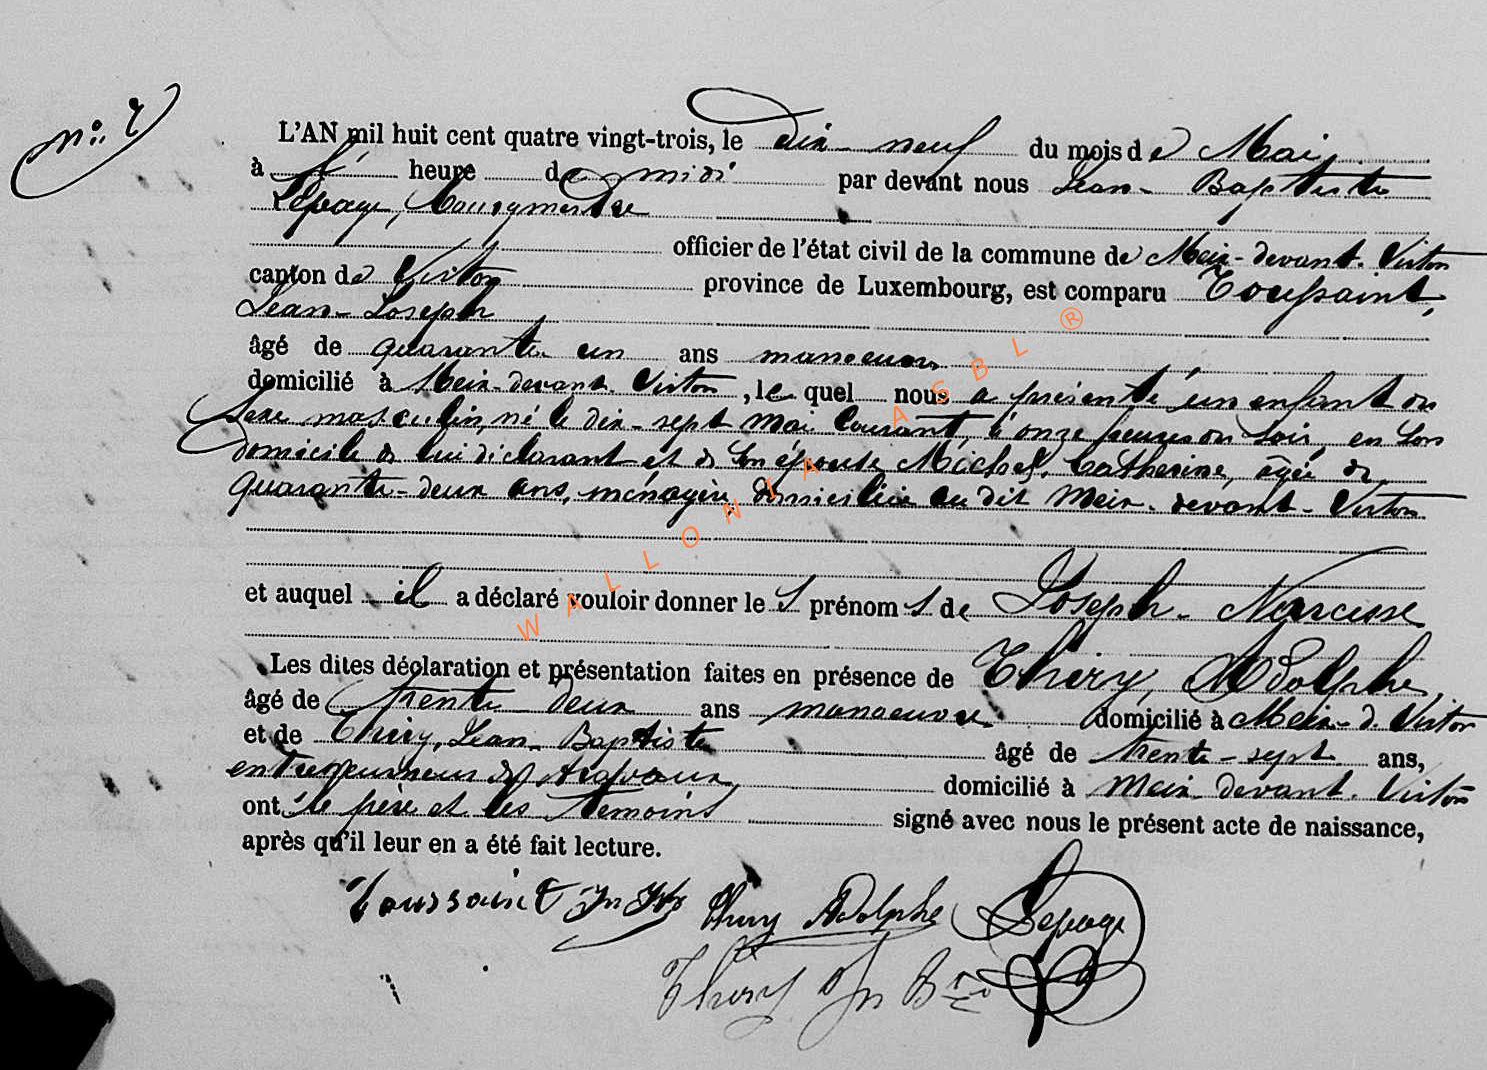 nº. 7
L'AN mil huit cent quatre vingt-trois, le dix neuf du mois de Mai,
à l' heure de midi par devant nous Jean-Baptiste
Lepage, Bourgmestre
officier de l'état civil de la commune de Meix-devant-Virton
canton de Virton province de Luxembourg, est comparu Toussaint,
Jean-Joseph
âgé de quarante un ans manoeuvre
domicilié à Meix-devant-Virton, le quel nous a présenté un enfant du
sexe masculin, né le dix-sept Mai courant, à onze heures du soir, en son
domicile de lui déclarant et de son épouse Michel, Catherine, âgée de
quarante-deux ans, ménagère, domiciliée au dit Meix-devant-Virton
et auquel il a déclaré vouloir donner le s prénom s de Joseph-Narcisse
Les dites déclaration et présentation faites en présence de Thiry, Adolphe,
âgé de trente deux ans manoeuvre domicilié à Meix-d-Virton
et de Thiry, Jean-Baptiste âgé de trente-sept ans,
entrepreneur de travaux, domicilié à Meix-devant-Virton
ont le père et les témoins signé avec nous le présent acte de naissance,
après qu'il leur en a été fait lecture.
Toussaint Jn Jph Thiry Adolphe Lepage
Thiry Jn Bte
WALLONIA ASBL ®